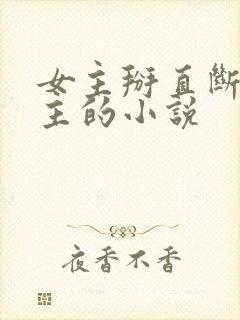 女主掰直断
主的小说
夜香不香